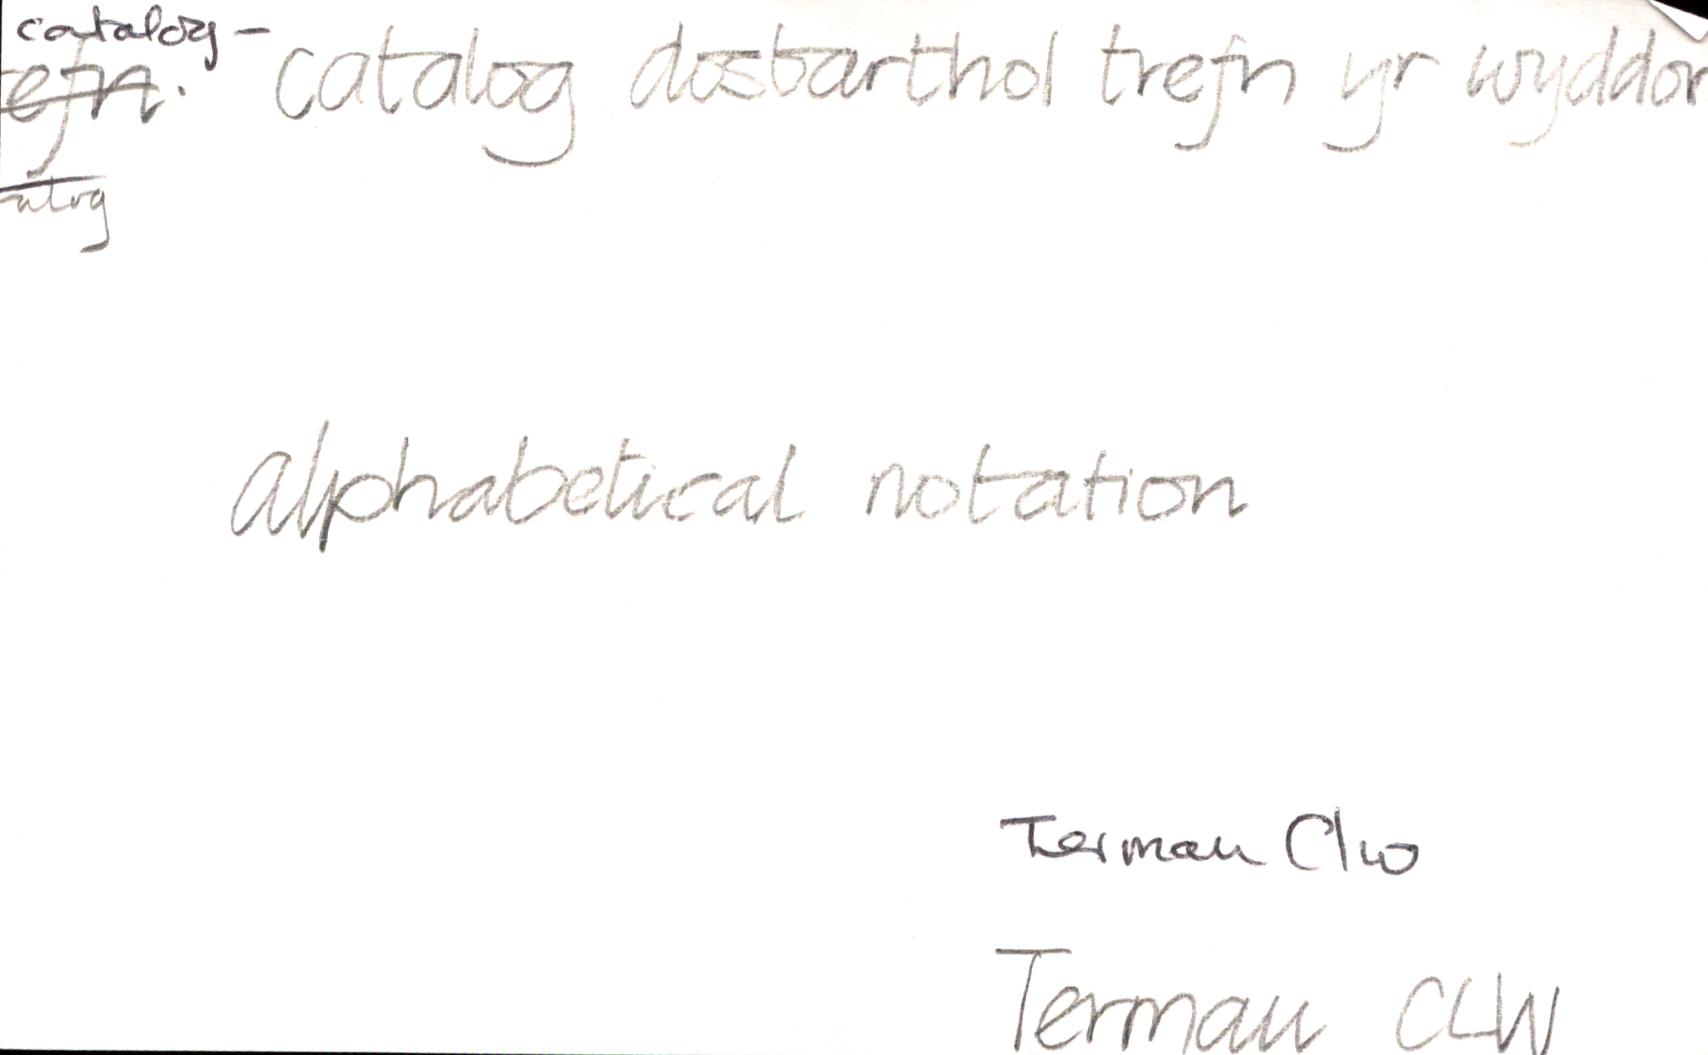 catalog –
catalog dosbarthol trefn yr wyddor
alphabetical notation
Termau Clw
Termau CLW